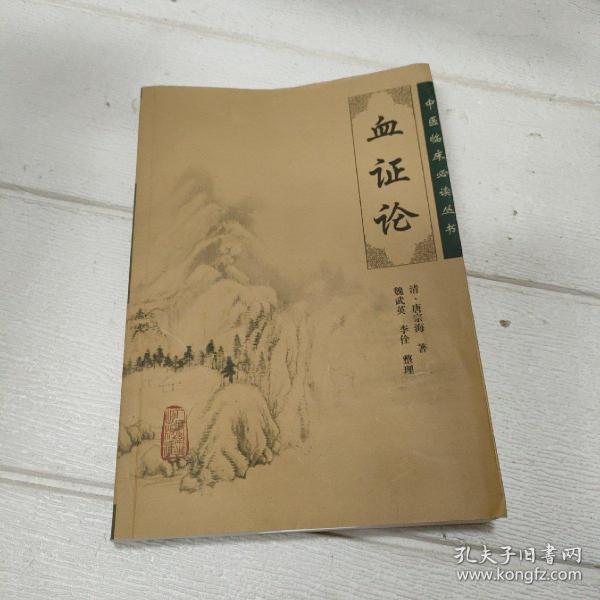 中医临床必读丛书
血证论
清·唐宗海 著
魏武英 李佺 整理
孔夫子旧书网
www.kongfz.com